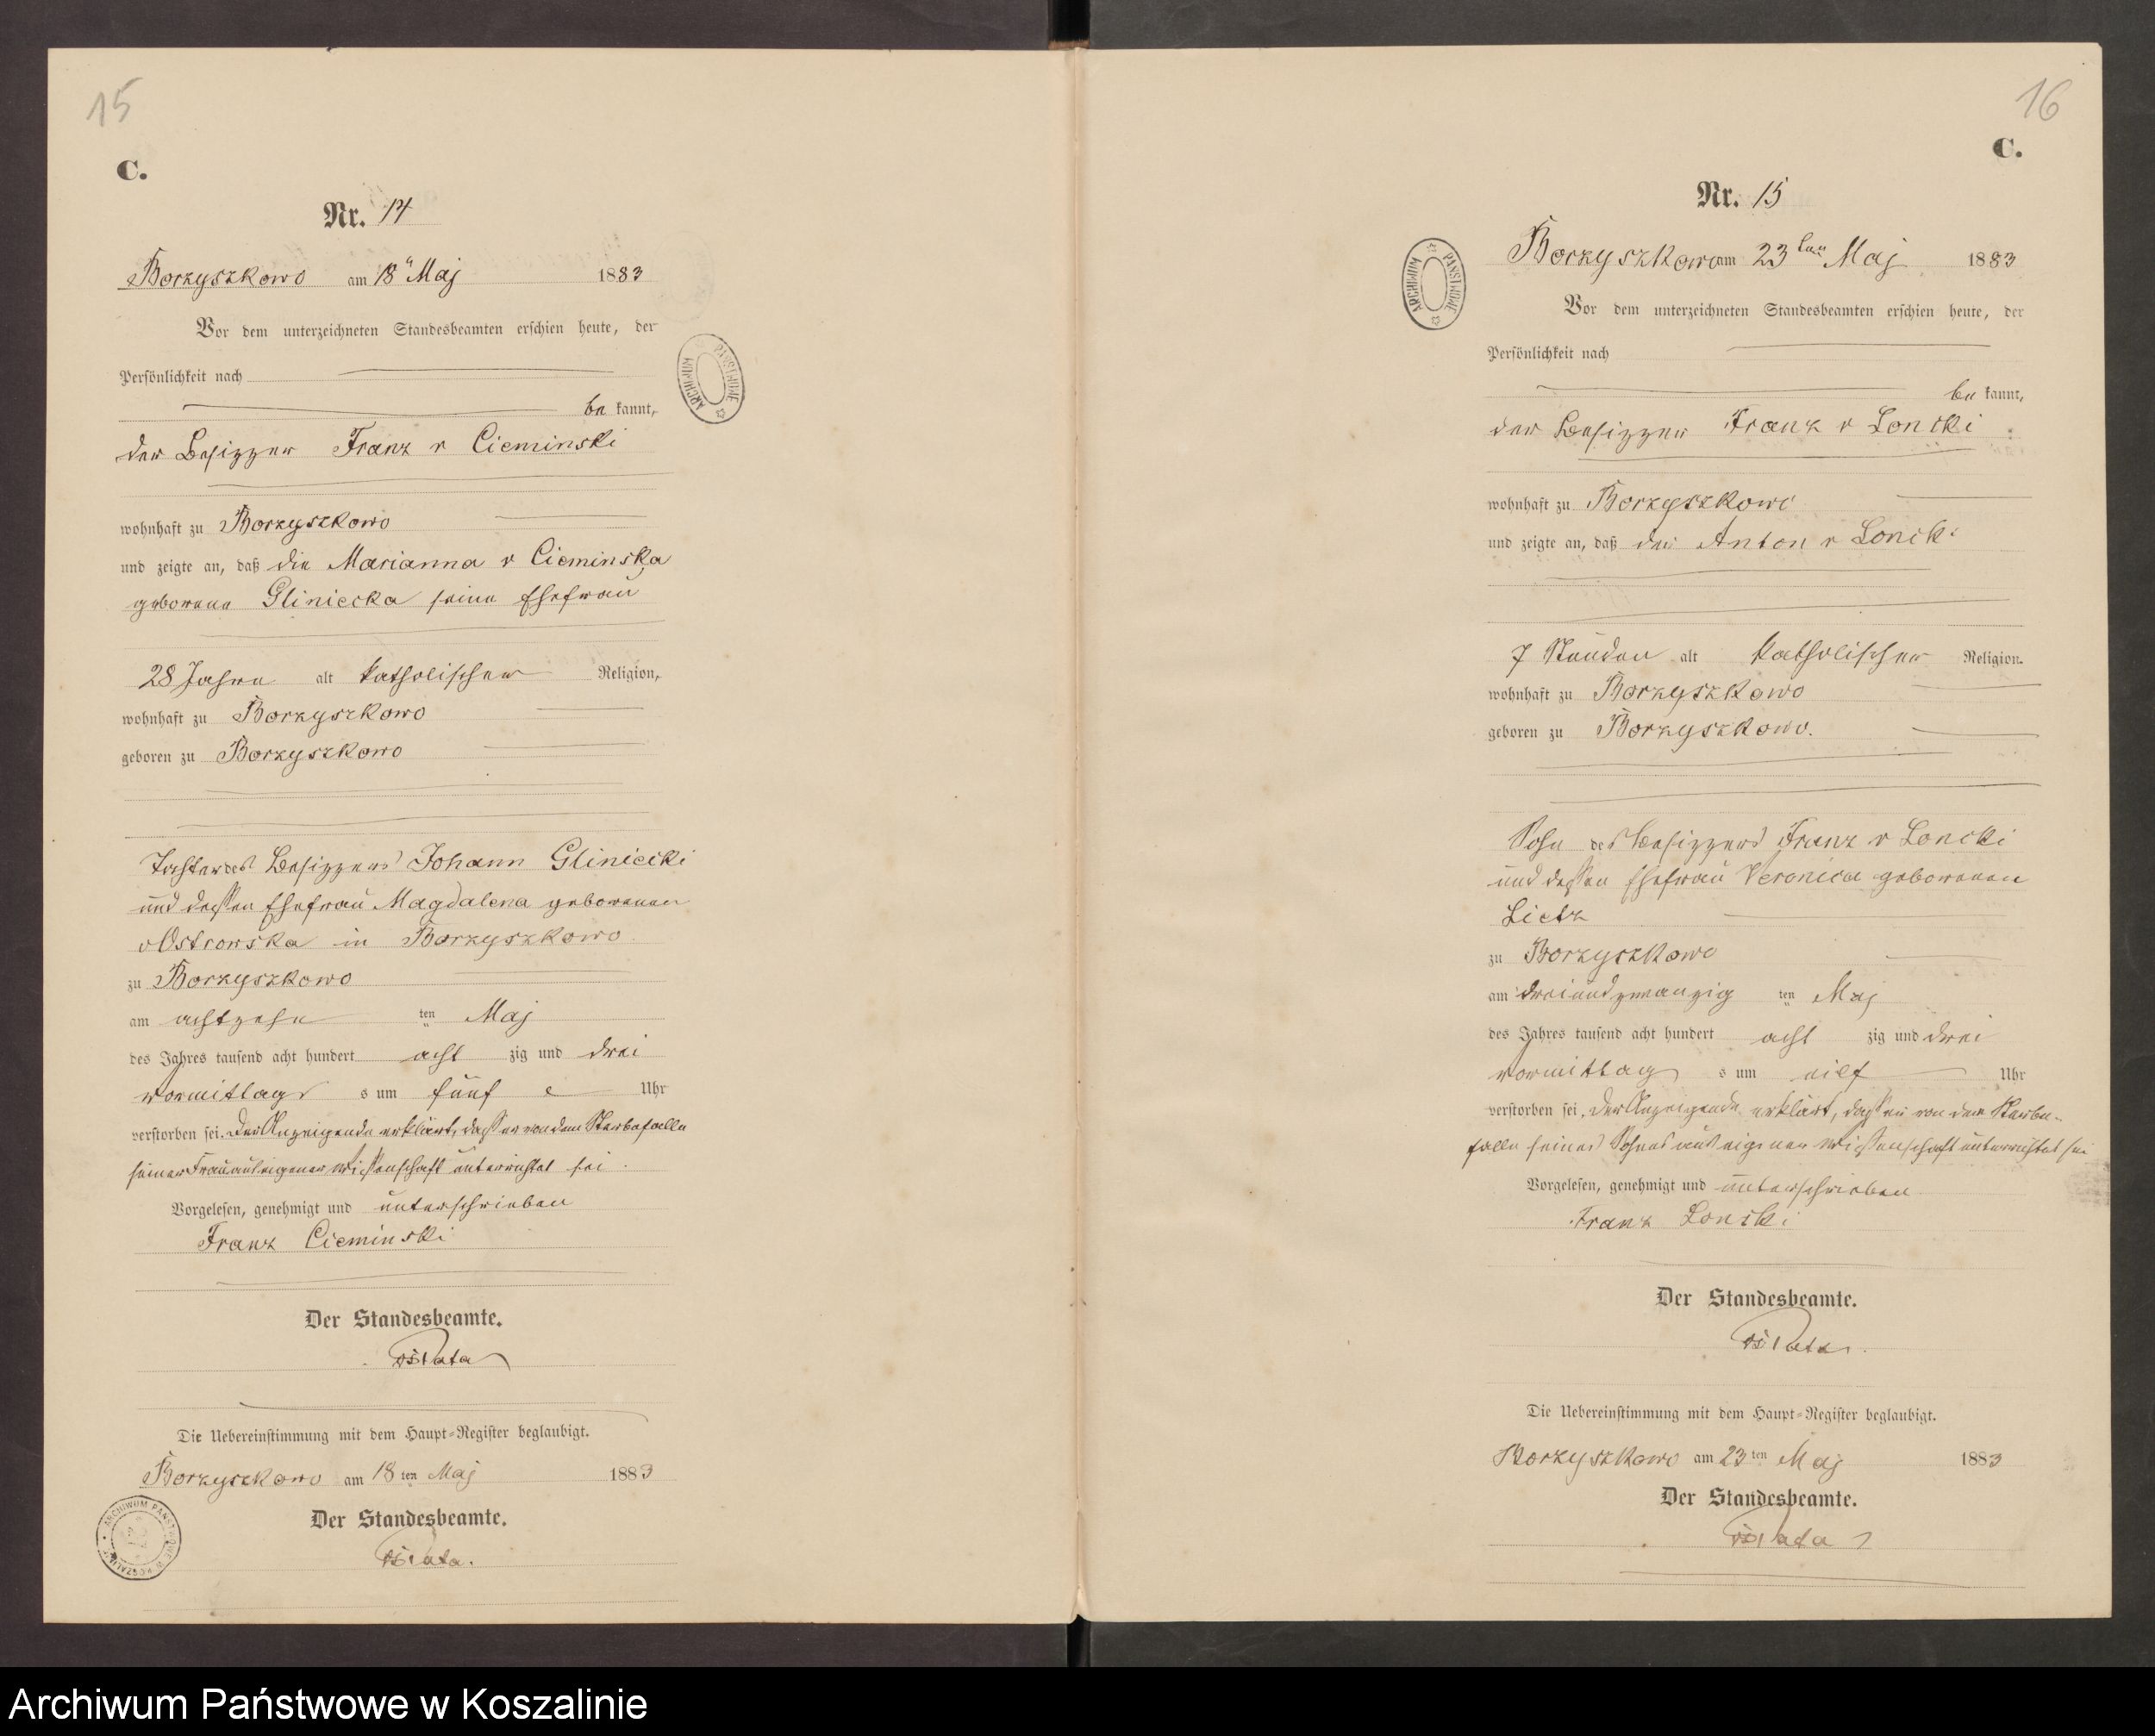 15
C.
Nr. 14
Borzyszkowo am 18" Maj 1883
Vor dem unterzeichneten Standesbeamten erschien heute, der
Persönlichkeit nach
be kannt,
der Besizzer Franz v Cieminski
wohnhaft zu Borzyszkowo
und zeigte an, daß die Marianna v Cieminska
geborene Gliniecka seine Ehefrau
28 Jahre alt katholischer Religion,
wohnhaft zu Borzyszkowo
geboren zu Borzyszkowo
Tochter des Besizzers Johann Gliniecki
und dessen Ehefrau Magdalena geborenen
v Ostrowska in Borzyszkowo
zu Borzyszkowo
am achtzehn ten Maj
des Jahres tausend acht hundert acht zig und drei
vormittags s um fünf Uhr
verstorben sei. Der Anzeigende erklärt, dass er von dem Sterbefalle
seiner Frau aus eigener Wissenschaft unterrichtet sei.
Vorgelesen, genehmigt und unterschrieben
Franz Cieminski
Der Standesbeamte.
Die Uebereinstimmung mit dem Haupt-Register beglaubigt.
Borzyszkowo am 18 ten Maj 1883
Der Standesbeamte.
ARCHIWUM PAŃSTWOWE
ARCHIWUM PAŃSTWOWE W KOSZALINIE
16
C.
Nr. 15
Borzyszkowo am 23 ten Maj 1883
Vor dem unterzeichneten Standesbeamten erschien heute, der
Persönlichkeit nach
be kannt,
der Besizzer Franz v Loncki
wohnhaft zu Borzyszkowo
und zeigte an, daß der Anton v Loncki
7 Stunden alt katholischer Religion.
wohnhaft zu Borzyszkowo
geboren zu Borzyszkowo.
Sohn des Besizzers Franz v Loncki
und dessen Ehefrau Veronica geborenen
Lietz
zu Borzyszkowo
am dreiundzwanzig ten Maj
des Jahres tausend acht hundert acht zig und drei
vormittag s um eilf Uhr
verstorben sei. Der Anzeigende erklärt, dass er von dem Sterbe-
falle seines Sohnes aus eigener Wissenschaft unterrichtet sei
Vorgelesen, genehmigt und unterschrieben
Franz Loncki
Der Standesbeamte.
Die Uebereinstimmung mit dem Haupt-Register beglaubigt.
Borzyszkowo am 23 ten Maj 1883
Der Standesbeamte.
ARCHIWUM PAŃSTWOWE
Archiwum Państwowe w Koszalinie